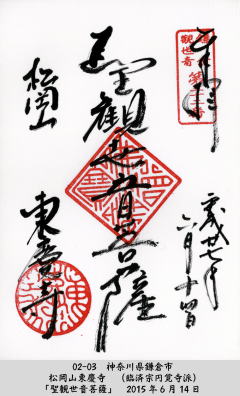 奉拝
平成廿七年
六月十四日
聖觀世音菩薩
松岡山
東慶寺
02-03 神奈川県鎌倉市
松岡山東慶寺 (臨済宗円覚寺派)
「聖観世音菩薩」 2015年6月14日